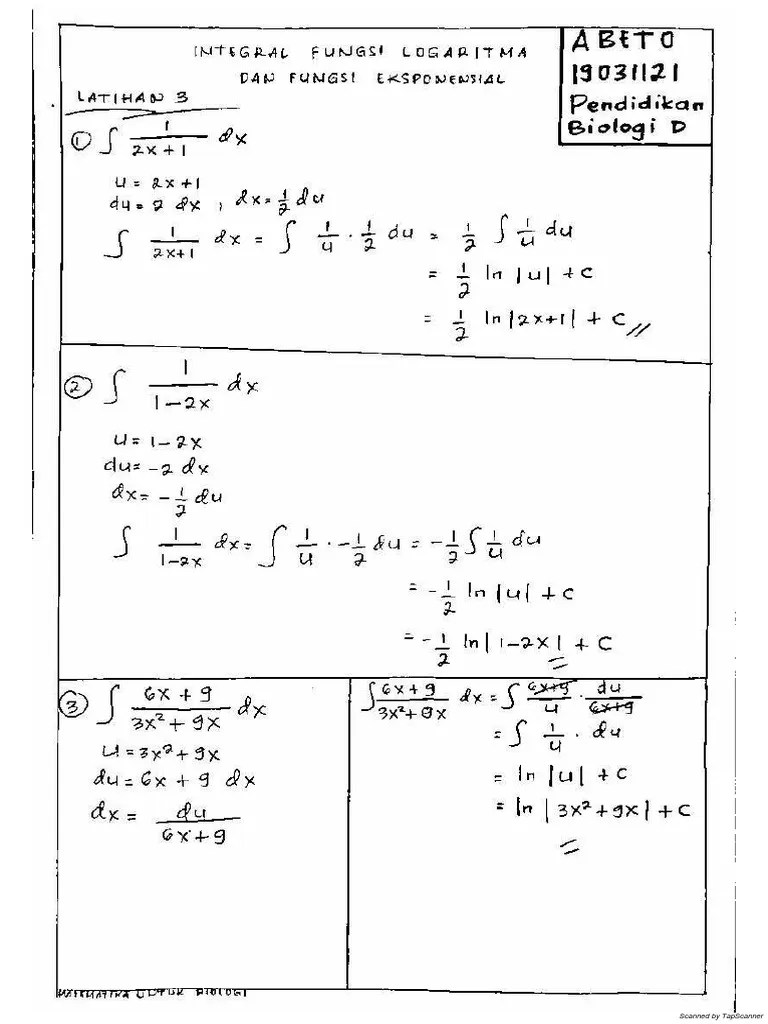 INTEGRAL FUNGSI LOGARITMA
DAN FUNGSI EKSPONENSIAL
ABETO
19031121
Pendidikan
Biologi D
LATIHAN 3
① ∫ 1/(2x+1) dx
u = 2x+1
du = 2 dx , dx = 1/2 du
∫ 1/(2x+1) dx = ∫ 1/u · 1/2 du = 1/2 ∫ 1/u du
= 1/2 ln |u| + C
= 1/2 ln|2x+1| + C //
② ∫ 1/(1-2x) dx
u = 1-2x
du = -2 dx
dx = -1/2 du
∫ 1/(1-2x) dx = ∫ 1/u · -1/2 du = -1/2 ∫ 1/u du
= -1/2 ln |u| + C
= -1/2 ln|1-2x| + C
③ ∫ (6x+9)/(3x²+9x) dx
u = 3x²+9x
du = 6x+9 dx
dx = du/(6x+9)
∫ (6x+9)/(3x²+9x) dx = ∫ (6x+9)/u · du/(6x+9)
= ∫ 1/u · du
= ln |u| + C
= ln |3x²+9x| + C
MATEMATIKA UNTUK BIOLOGI
Scanned by TapScanner